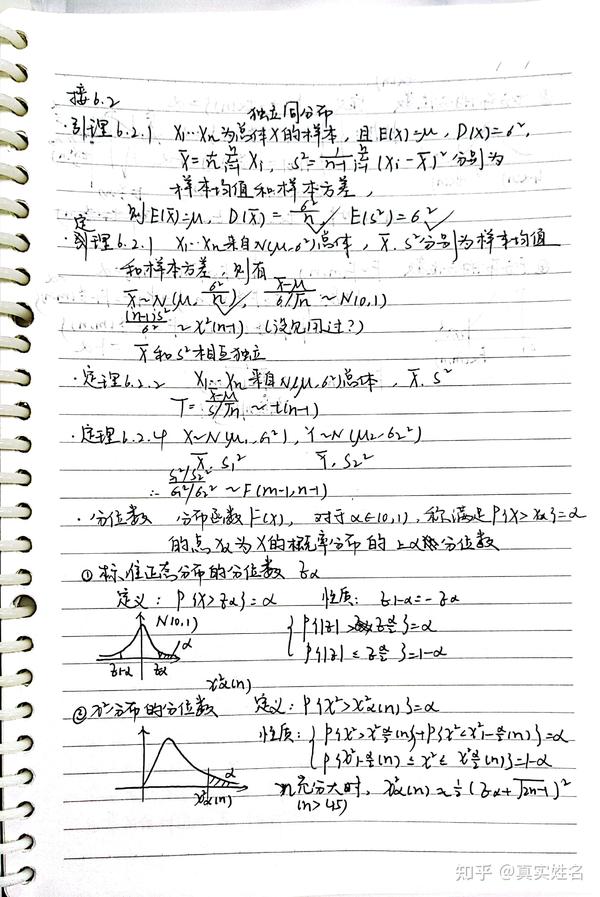 接6.2
独立同分布
·引理6.2.1 X₁…Xₙ为总体X的样本,且E(X)=μ, D(X)=σ²,
X̄=1/n Σᵢ₌₁ⁿ Xᵢ, S²=1/(n-1) Σᵢ₌₁ⁿ (Xᵢ-X̄)² 分别为
样本均值和样本方差,
则E(X̄)=μ, D(X̄)=σ²/n, E(S²)=σ²
·定理6.2.1 X₁…Xₙ来自N(μ,σ²)总体, X̄, S²分别为样本均值
和样本方差,则有
X̄~N(μ, σ²/n), (X̄-μ)/(σ/√n) ~ N(0,1)
(n-1)S²/σ² ~ χ²(n-1) (没见用过?)
X̄和S²相互独立
·定理6.2.2 X₁…Xₙ来自N(μ,σ²)总体, X̄, S²
T=(X̄-μ)/(S/√n) ~ t(n-1)
·定理6.2.4 X~N(μ₁,σ₁²), Y~N(μ₂,σ₂²)
X̄, S₁² Ȳ, S₂²
∴ (S₁²/S₂²)/(σ₁²/σ₂²) ~ F(m-1,n-1)
·分位数 分布函数F(x), 对于α∈(0,1), 称满足P{X>xα}=α
的点xα为X的概率分布的上α分位数
① 标准正态分布的分位数 zα
定义: P{X>zα}=α 性质: z1-α=-zα
N(0,1)
α
z1-α zα
{ P{|z|>zα/2}=α
P{|z|≤zα/2}=1-α
χ²α(n)
② χ²分布的分位数 定义: P{χ²>χ²α(n)}=α
性质: { P{χ²>χ²α/2(n)}+P{χ²<χ²1-α/2(n)}=α
P{χ²1-α/2(n)≤χ²≤χ²α/2(n)}=1-α
α
χ²α(n)
n充分大时, χ²α(n)≈1/2(zα+√(2n-1))²
(n>45)
知乎 @真实姓名